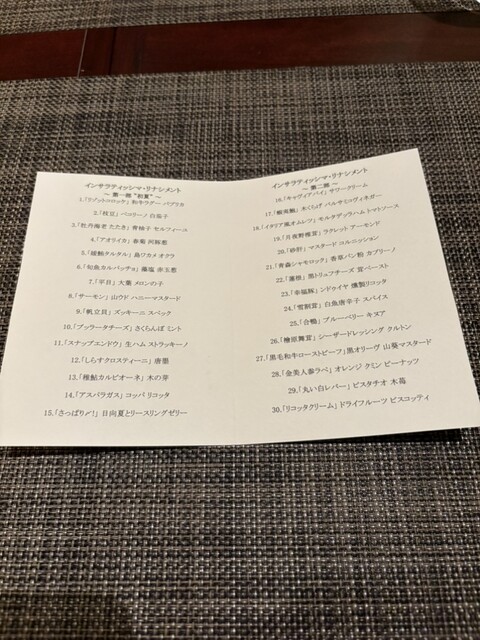 インサラティッシマ・リナシメント
～ 第一部 "初夏" ～
1.「リゾットコロッケ」和牛ラグー パプリカ
2.「枝豆」ペコリーノ 白茄子
3.「牡丹海老 たたき」青柚子 セルフィーユ
4.「アオリイカ」春菊
5.「鰹タルタル」島ワカメ オクラ
6.「旬魚カルパッチョ」藻塩 赤玉葱
7.「平目」大葉 メロンの子
8.「サーモン」山ウド ハニーマスタード
9.「帆立貝」ズッキーニ スペック
10.「ブッラータチーズ」さくらんぼ ミント
11.「スナップエンドウ」生ハム ストラッキーノ
12.「しらすクロスティーニ」唐墨
13.「稚鮎カルピオーネ」木の芽
14.「アスパラガス」コッパ リコッタ
15.「さっぱり〆!」日向夏とリースリングゼリー
インサラティッシマ・リナシメント
～ 第二部 ～
16.「キャヴィアパイ」サワークリーム
17.「鰻蕪鮨」木くらげ バルサミコヴィネガー
18.「イタリア風オムレツ」モルタデッラハム トマトソース
19.「月夜野椎茸」ラクレット アーモンド
20.「砂肝」マスタード コルニッション
21.「青森シャモロック」香草パン粉 カプリーノ
22.「蓮根」黒トリュフチーズ 茸ペースト
23.「幸福豚」シドゥイヤ 燻製リコッタ
24.「雪割茸」白魚唐辛子 スパイス
25.「合鴨」ブルーベリー キヌア
26.「檜原舞茸」シーザードレッシング クルトン
27.「黒毛和牛ローストビーフ」黒オリーヴ 山葵マスタード
28.「金美人参ラペ」オレンジ クミン ピーナッツ
29.「丸い白レバー」ピスタチオ 木苺
30.「リコッタクリーム」ドライフルーツ ビスコッティ